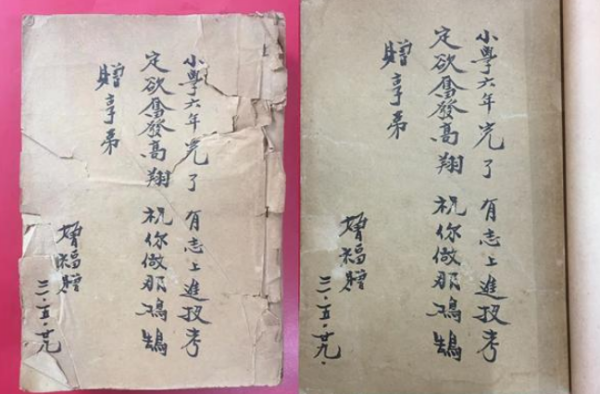 上
小學六年完了 有志上進投考
定欲奮發高翔 祝你做那鴻鵠
贈享弟
福贈
三·五·廿九·
小學六年完了 有志上進投考
定欲奮發高翔 祝你做那鴻鵠
贈享弟
福贈
三·五·廿九·